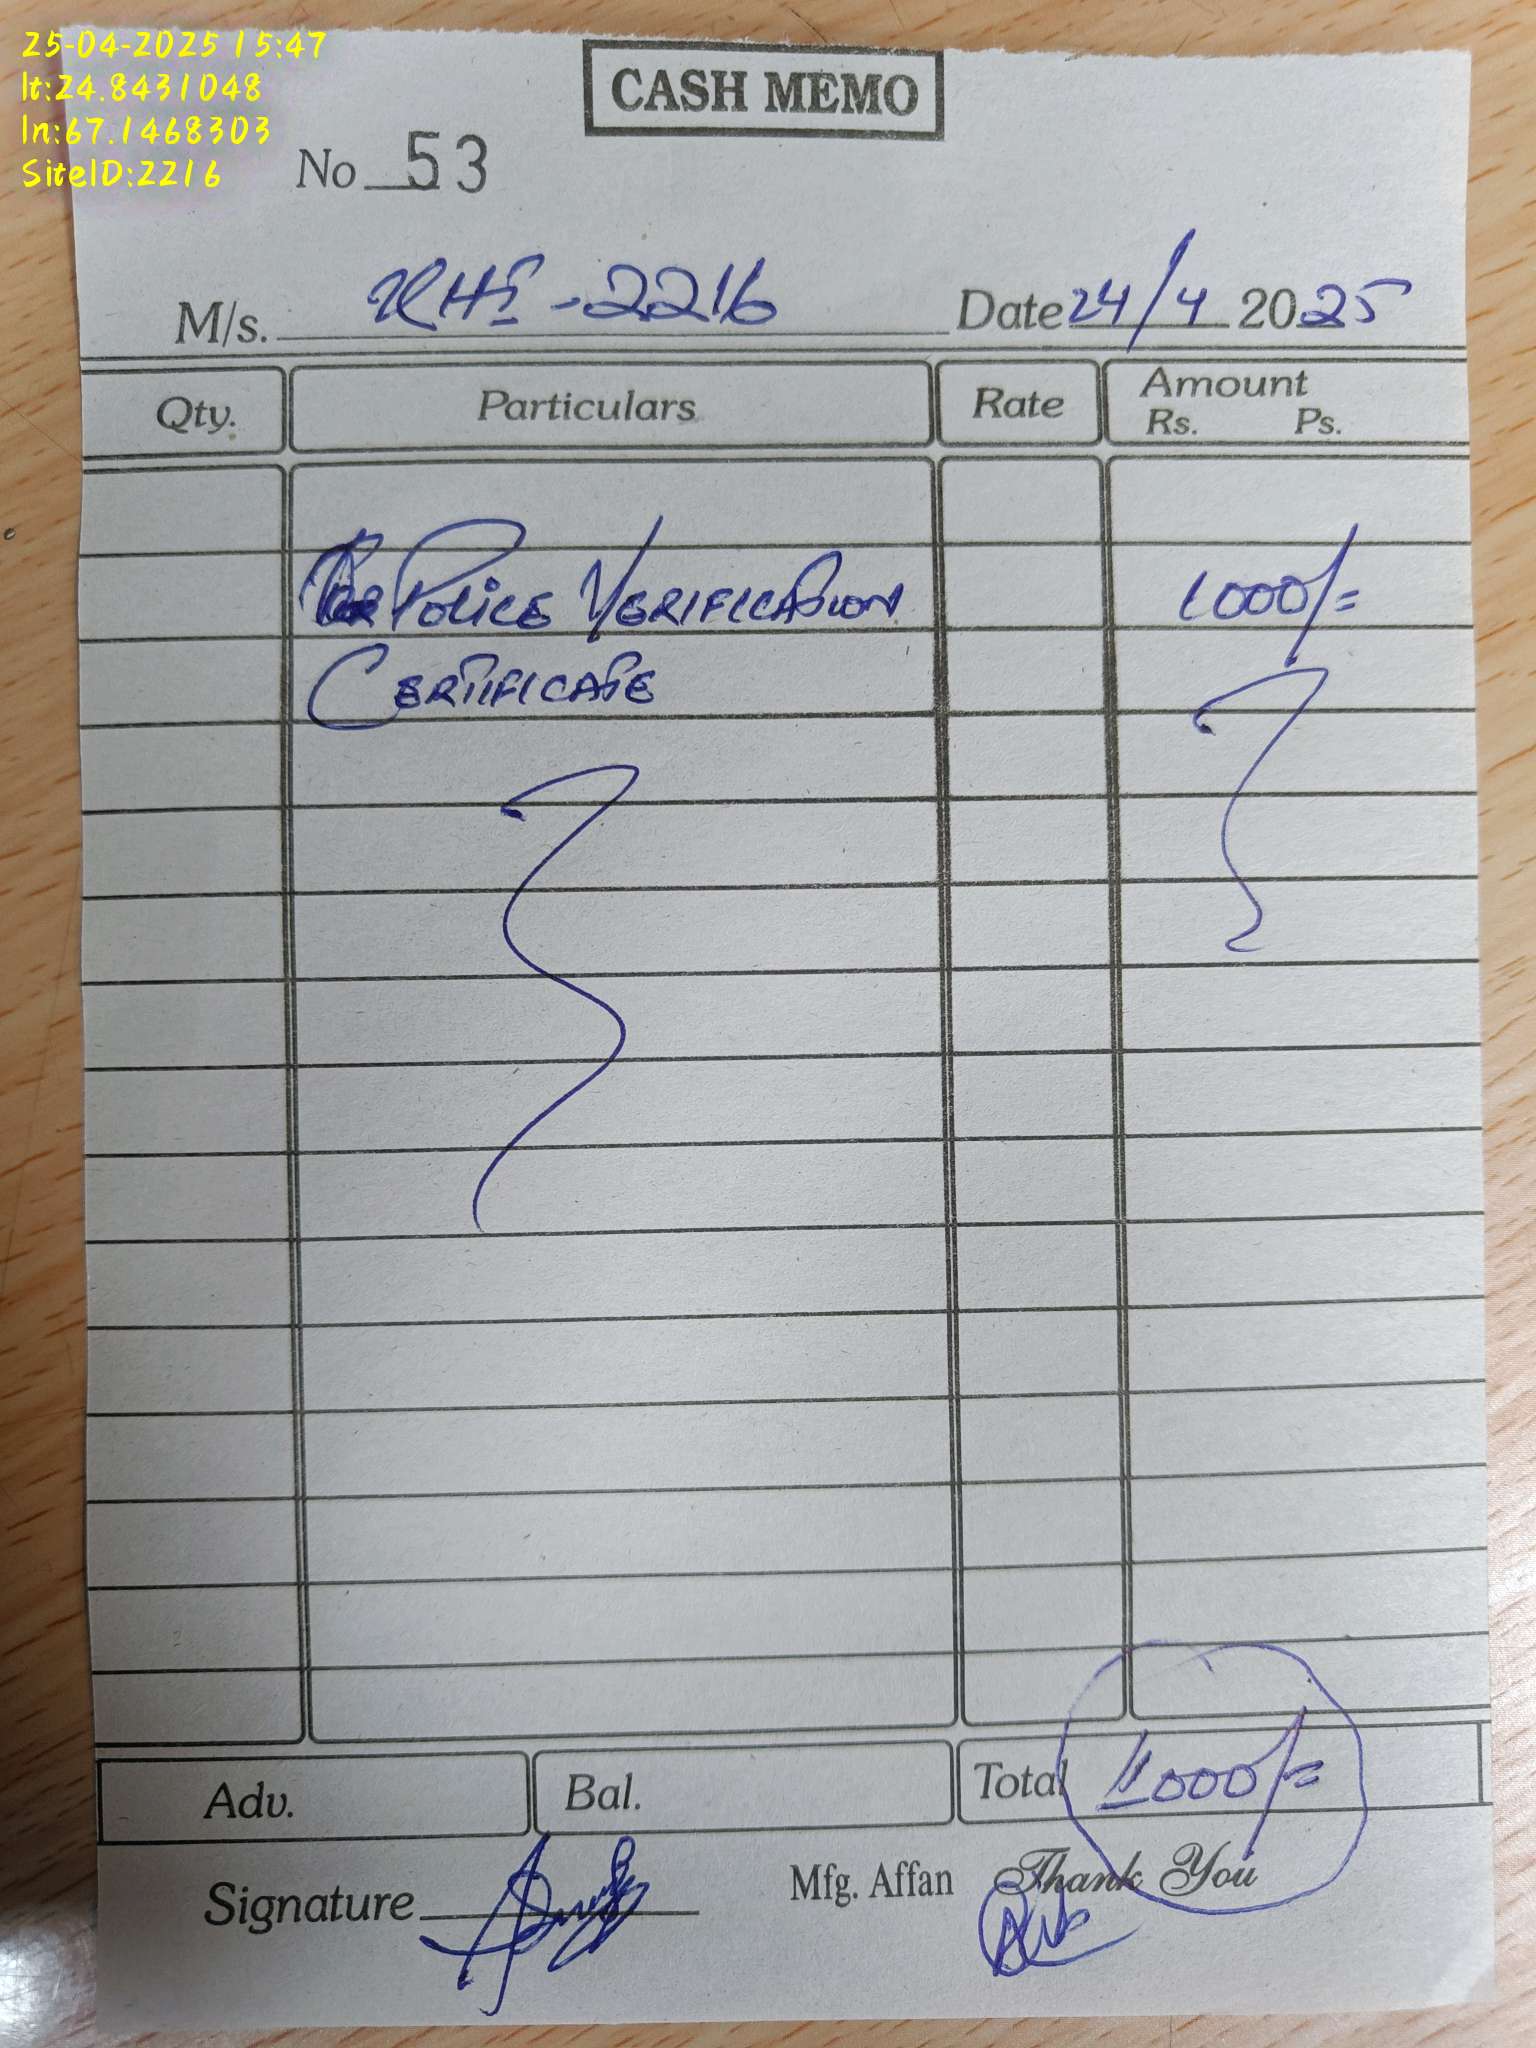 25-04-2025 15:47
lt:24.8431048
ln:67.1468303
SiteID:2216
CASH MEMO
No 53
M/s. KHI-2216 Date 24/4 2025
Qty. Particulars Rate Amount
Rs. Ps.
Police Verification 1000/=
Certificate
Adv. Bal. Total 1000/=
Signature Mfg. Affan Thank You